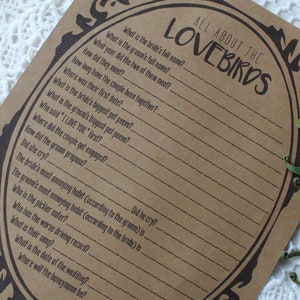 ALL ABOUT THE
LOVEBIRDS
What is the bride's full name?
What is the groom's full name?
What year did the two of them meet?
How did they meet?
How long have the couple been together?
Where was their first date?
What is the bride's biggest pet peeve?
What is the groom's biggest pet peeve?
Who said "I LOVE YOU" first?
Where did the couple get engaged?
How did the groom propose?
Did she cry? Did he cry?
The bride's most annoying habit (according to the groom) is
The groom's most annoying habit (according to the bride) is
Who is the pickier eater?
Who has the worse driving record?
What is their song?
What is the date of the wedding?
Where will the honeymoon be?